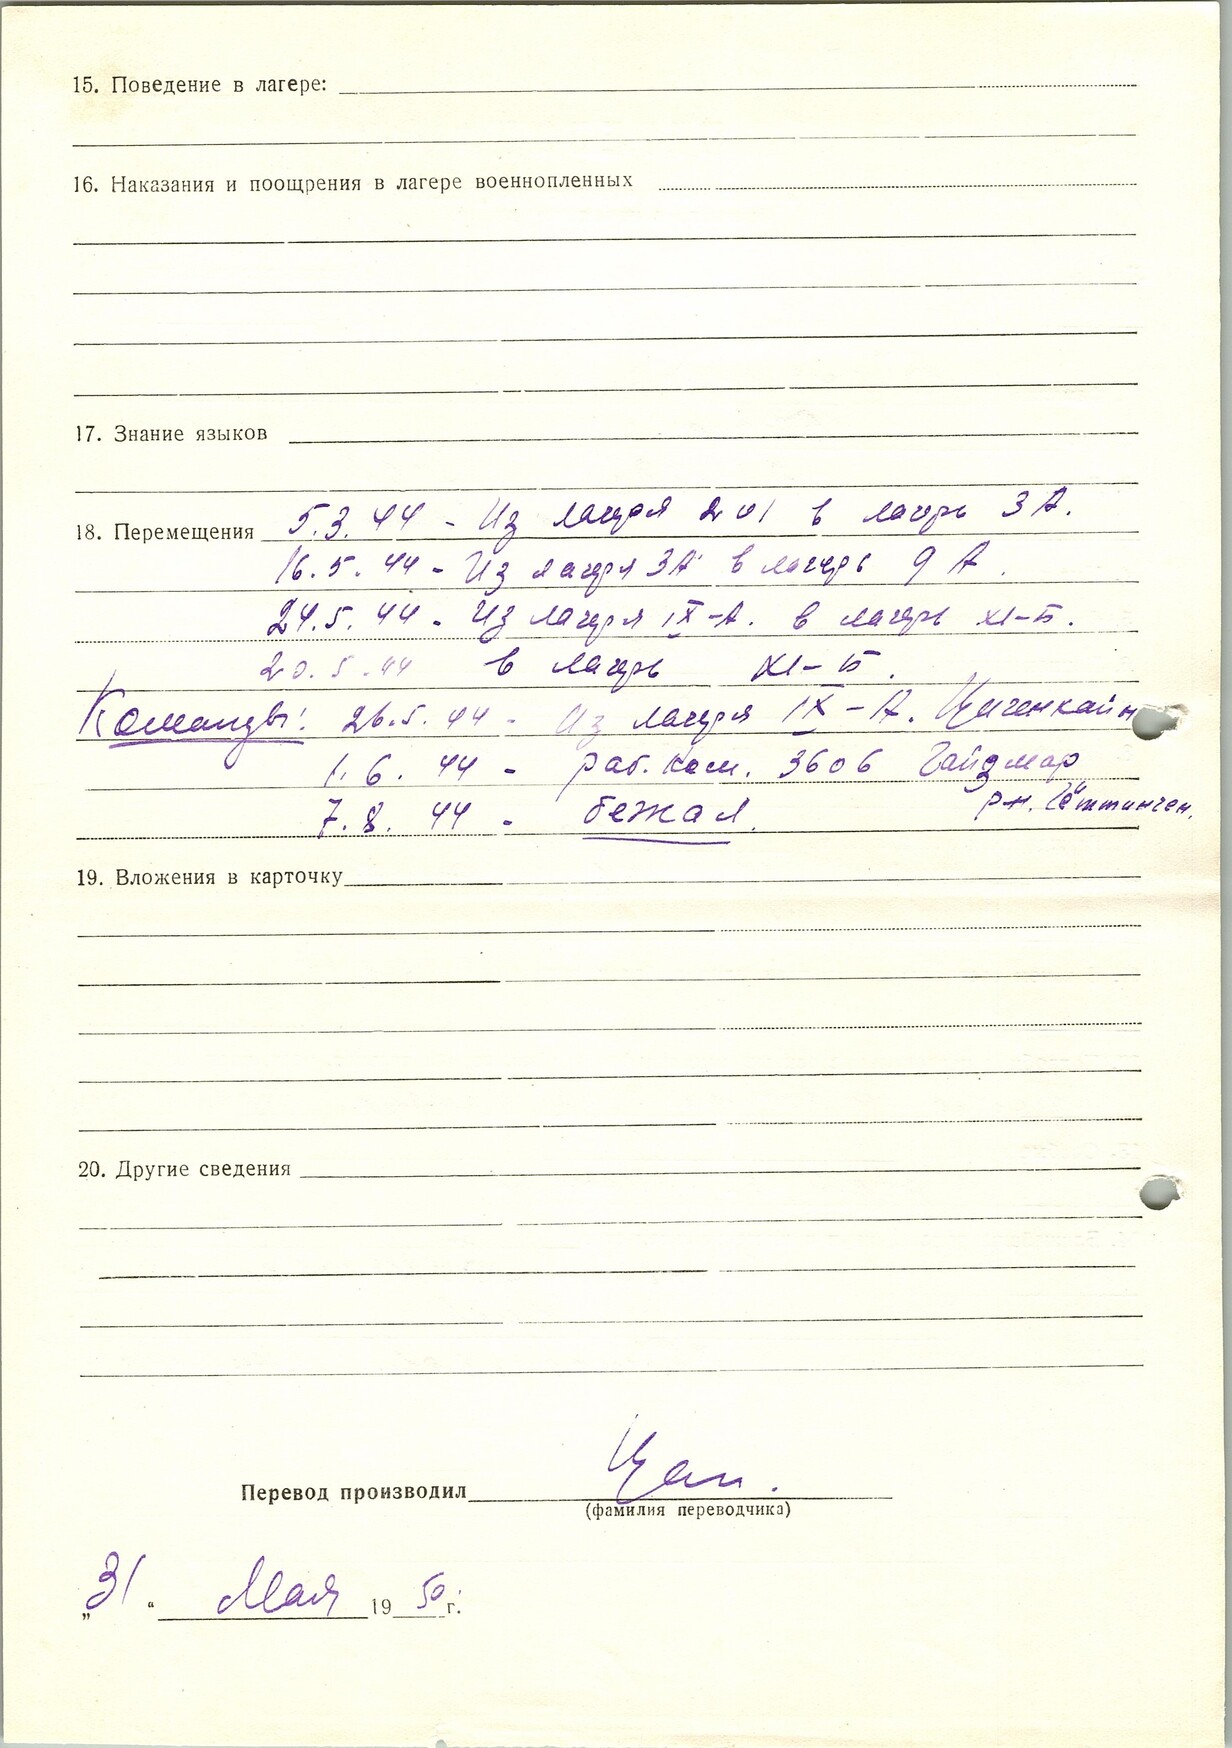 15. Поведение в лагере:
16. Наказания и поощрения в лагере военнопленных
17. Знание языков
18. Перемещения 5.3.44 - Из лагеря 201 в лагерь 3 А.
16.5.44 - Из лагеря 3А в лагерь 9 А.
24.5.44 - Из лагеря IX-А. в лагерь XI-Б.
20.5.44 в лагерь XI-Б.
Команды: 26.5.44 - Из лагеря IX-А. Цигенкайн
1.6.44 - раб. ком. 3606 Гайсмар
р-н. Гёттинген.
7.8.44 - бежал.
19. Вложения в карточку
20. Другие сведения
Перевод производил
(фамилия переводчика)
„31“ Мая 1950 г.